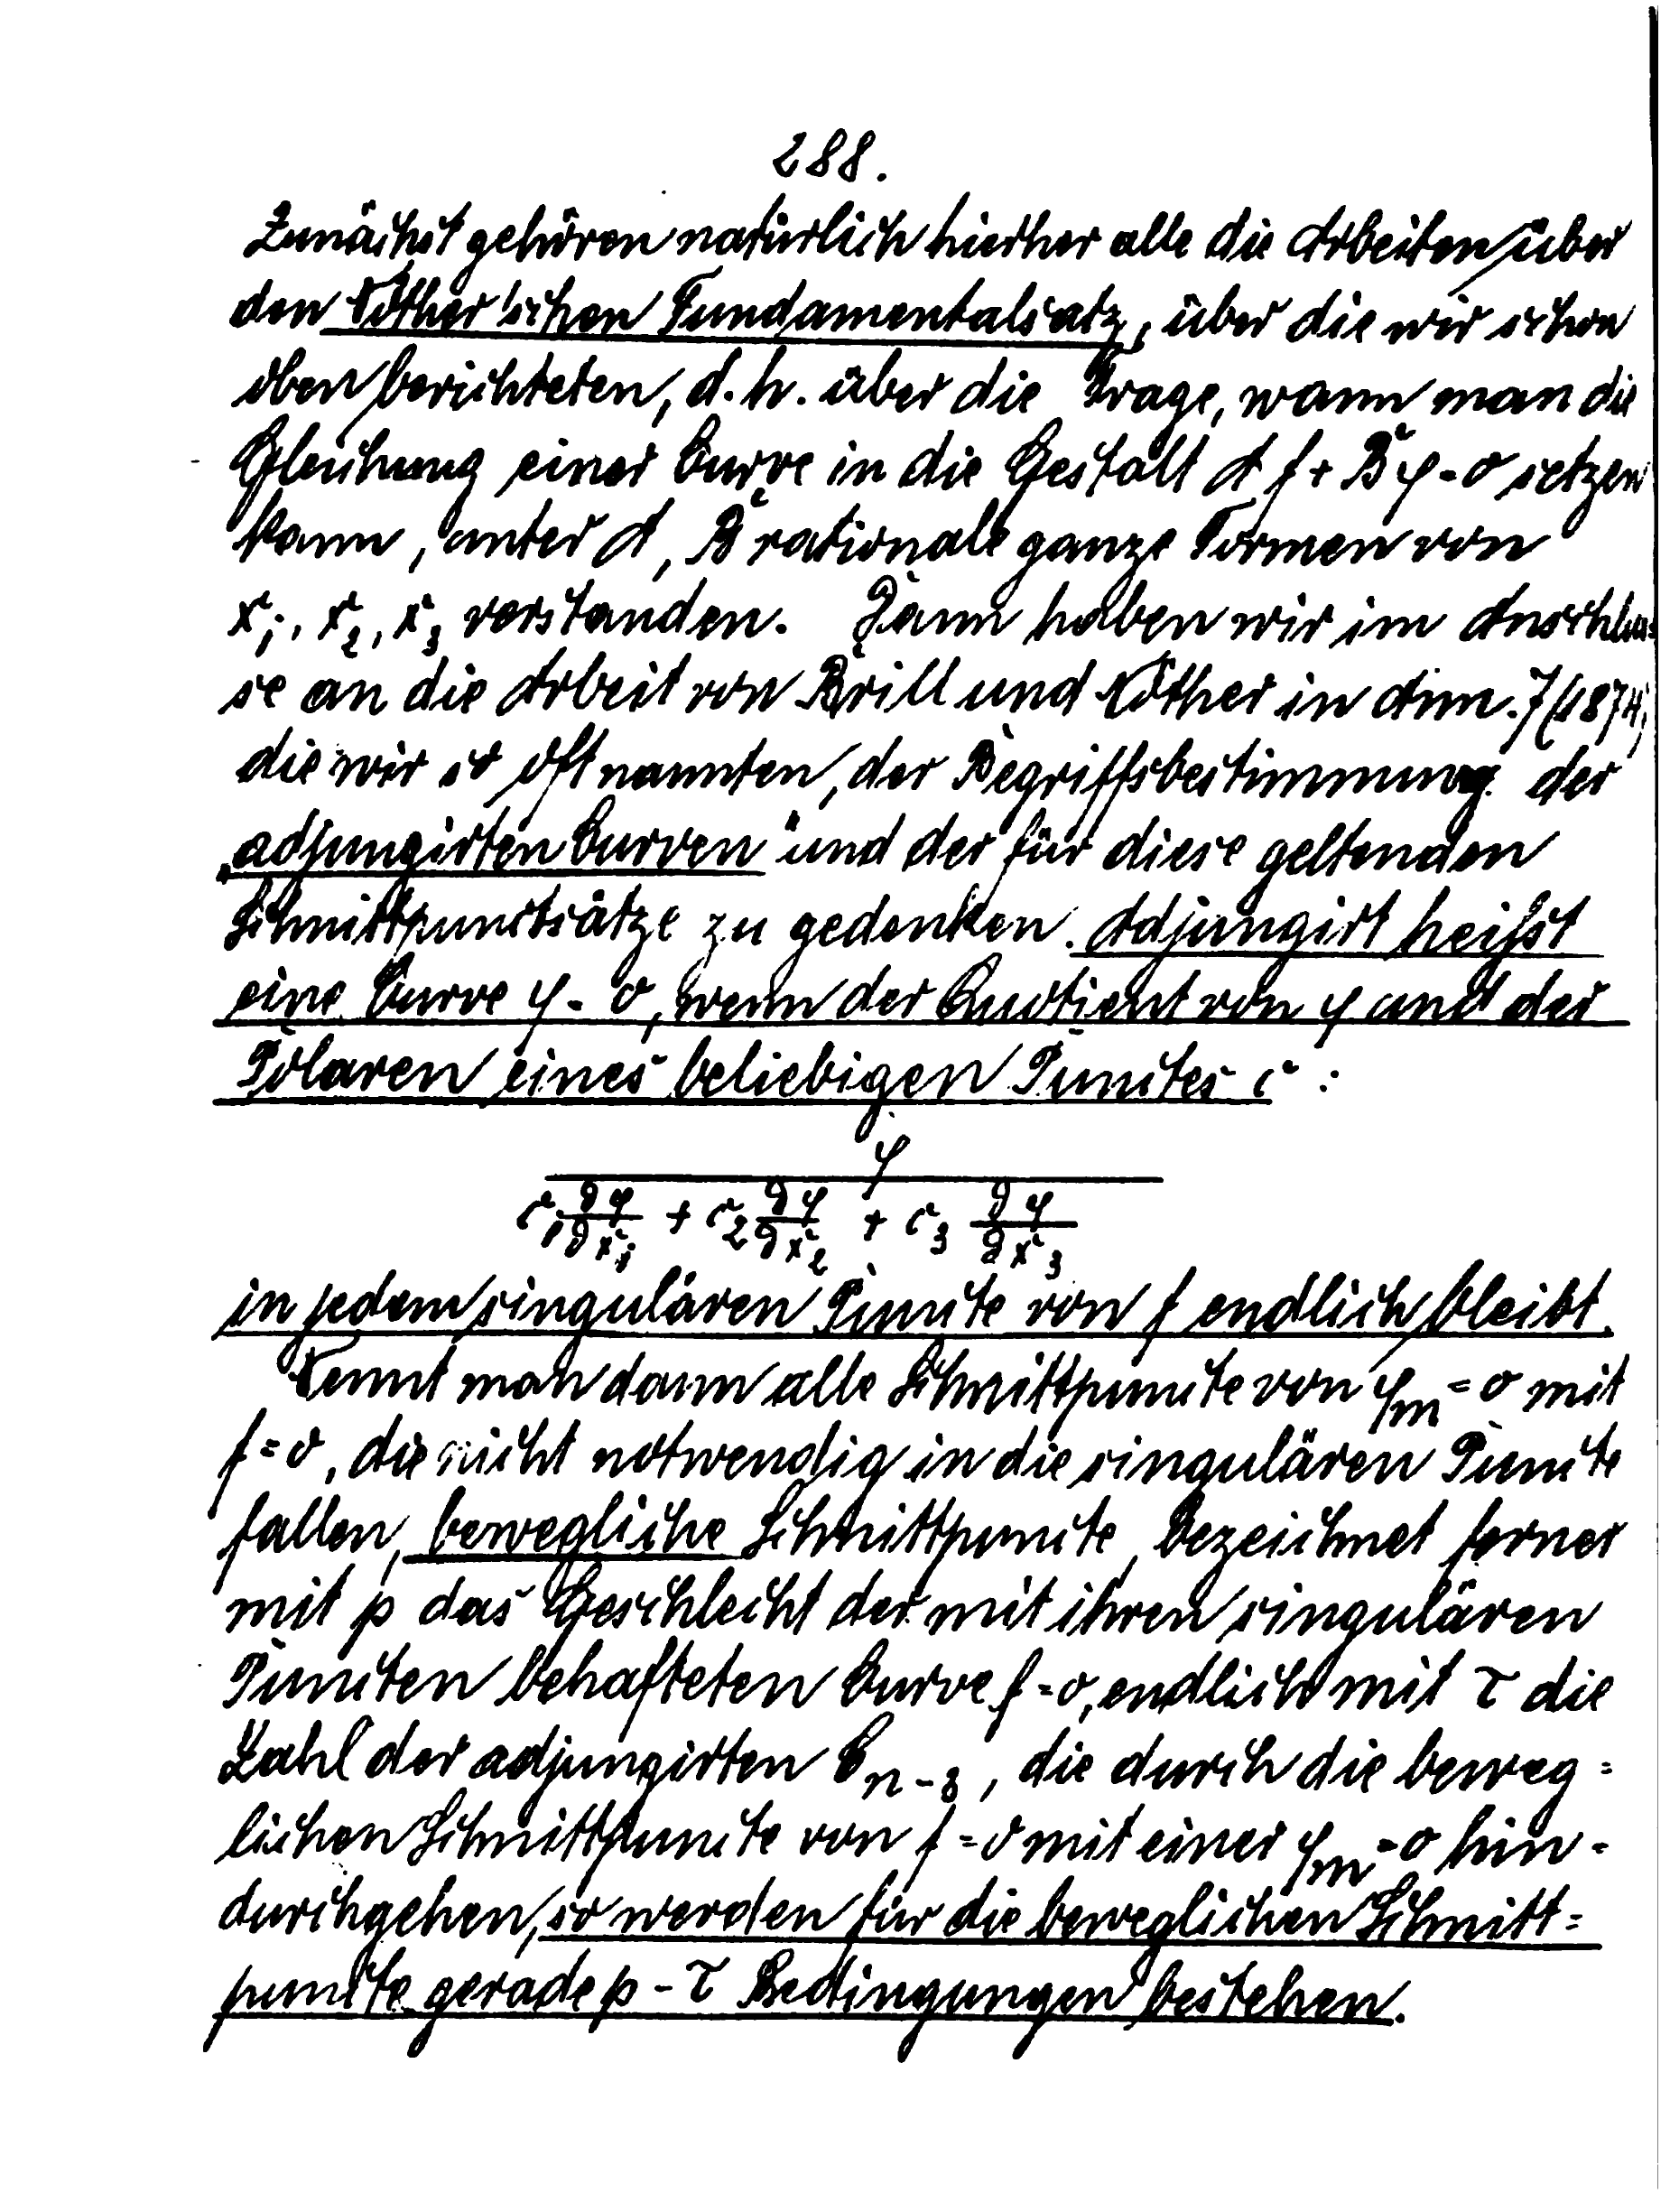 288.
Zunächst gehören natürlich hierher alle die Arbeiten über
den Nöther'schen Fundamentalsatz, über die wir schon
oben berichteten, d.h. über die Frage, wann man die
Gleichung einer Curve in die Gestalt A f + B φ = 0 setzen
kann, unter A, B rationale ganze Formen von
x₁, x₂, x₃ verstanden. Dann haben wir im Anschlus-
se an die Arbeit von Brill und Nöther in Ann. 7 (1874),
die wir so oft nannten, der Begriffsbestimmung der
„adjungirten Curven“ und der für diese geltenden
Schnittpunctsätze zu gedenken. Adjungirt heißt
eine Curve φ = 0, wenn der Quotient von φ und der
Polaren eines beliebigen Punctes c :
φ
c₁ ∂φ/∂x₁ + c₂ ∂φ/∂x₂ + c₃ ∂φ/∂x₃
in jedem singulären Puncte von f endlich bleibt.
Nennt man dann alle Schnittpuncte von φₘ = 0 mit
f = 0, die nicht notwendig in die singulären Puncte
fallen, bewegliche Schnittpuncte, bezeichnet ferner
mit p das Geschlecht der mit ihren singulären
Puncten behafteten Curve f = 0, endlich mit τ die
Zahl der adjungirten C n-3, die durch die beweg=
lichen Schnittpuncte von f = 0 mit einer φₘ = 0 hin-
durchgehen, so werden für die beweglichen Schnitt=
puncte gerade p - τ Bedingungen bestehen.